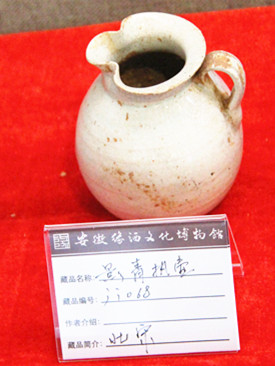 安徽傳酒文化博物館
藏品名称: 影青执壶
藏品编号: JJ068
作者介绍:
藏品简介: 北宋